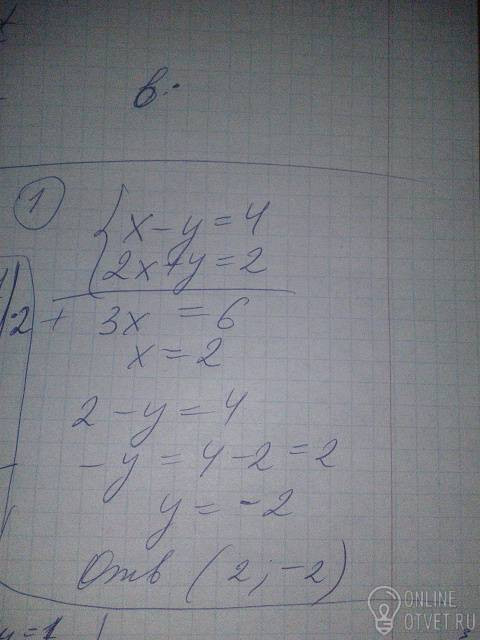 в.
1
{ x - y = 4
2x + y = 2
2 + 3x = 6
x = 2
2 - y = 4
- y = 4 - 2 = 2
y = -2
Отв (2; -2)
=1
ONLINE
OTVET.RU